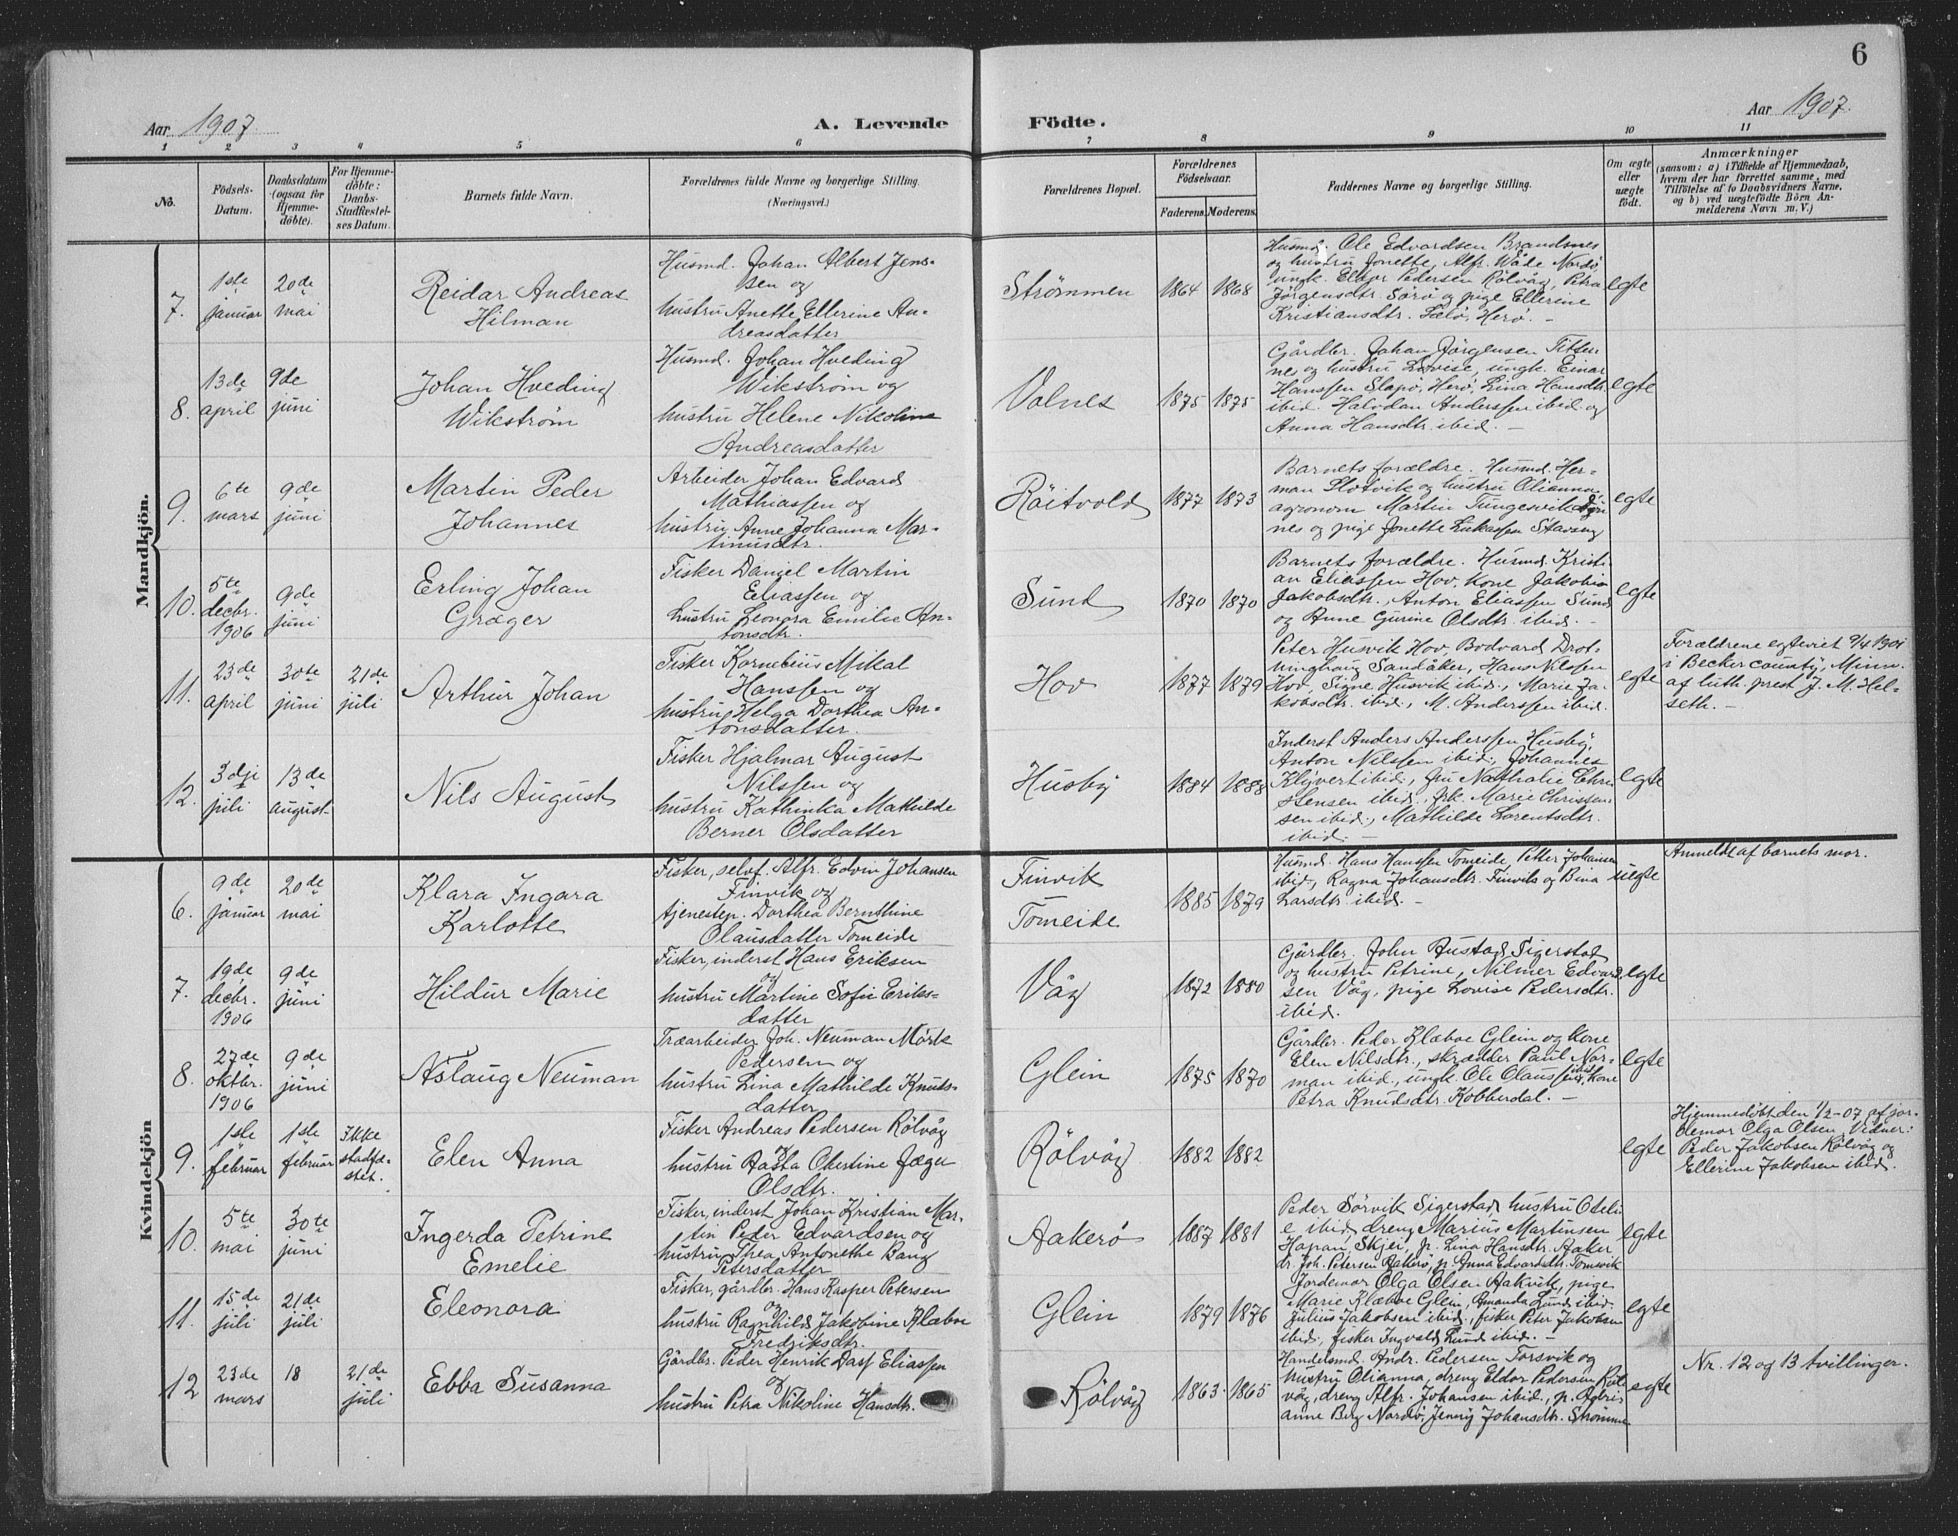 6
Aar 1907.
A. Levende Födte.
Aar 1907.
1 2 3 4 5 6 7 8 9 10 11
No.
Födsels-
Datum.
Daabsdatum
(ogsaa for
Hjemme-
döbte).
For Hjemme-
döbte:
Daabs-
Stadfæstel-
ses Datum.
Barnets fulde Navn.
Forældrenes fulde Navne og borgerlige Stilling.
(Næringsvei.)
Forældrenes Bopæl.
Forældrenes
Födselsaar.
Faderens. Moderens.
Faddernes Navne og borgerlige Stilling.
Om ægte
eller
uægte
födt.
Anmærkninger
(saasom: a) i Tilfælde af Hjemmedaab,
hvem der har forrettet samme, med
Tilföielse af to Daabsvidners Navne,
og b) ved uægtefödte Börn An-
melderens Navn m. V.)
Mandkjön.
7.
1ste
januar
20de
mai
Reidar Andreas
Hilman
Husmd. Johan Albert Jens-
sen og
hustru Anette Ellerine An-
dreasdatter
Strømmen
1864 1868
Husmd. Ole Edvardsen Brandsnes
og hustru Jonette, Alfr. Wåde Nordø
ungk. Eldor Pedersen Rölvåg, Petra
Jörgensdtr. Sörö og pige Ellerine
Kristiansdtr. Herö. –
egte
8.
13de
april
9de
juni
Johan Hveding
Wikstrøm
Husmd. Johan Hveding
Wikstrøm og
hustru Helene Nikoline
Andreasdatter
Volnes
1875 1875
Gårdbr. Johan Jörgensen Titter-
nes og hustru Lovise, ungk. Einar
Hanssen Slapö, Herö, Lina Hansdtr.
ibid. Halvdan Anderssen ibid. og
Anna Hansdtr. ibid. –
egte
9.
6te
mars
9de
juni
Martin Peder
Johannes
Arbeider Johan Edvard
Mathiassen og
hustru Anne Johanna Mar-
tinusdtr.
Röitvold
1877 1873
Barnets forældre. Husmd. Her-
man Slotvik og hustru Olianna,
agronom Martin Tungesvik
nes og pige Jonette Lukassen Stavseng
egte
10.
5te
decbr.
1906
9de
juni
Erling Johan
Græger
Fisker Daniel Martin
Eliassen og
hustru Leonora Emilie An-
tonsdtr.
Sund
1870 1870
Barnets forældre. Husmd. Kristi-
an Eliassen Hov, kone Jakobine
Jakobsdtr., Anton Eliassen Sund
og Anne Gurine Olsdtr. ibid. –
egte
11.
23de
april
30te
juni
21de
juli
Arthur Johan
Fisker Kornelius Mikal
Hanssen og
hustru Helga Dorthea An-
tonsdatter.
Hov
1877 1879
Peter Husvik Hov, Bodvard Drot-
ninghaug Sandåker, Hans Nilssen
Hov, Signe Husvik ibid., Marie Ja-
kobsdtr. ibid., M. Anderssen ibid.
egte
Forældrene egteviet 9/4 1901
i Becker county, Minn.
af luth. prest J. M. Hel-
seth. –
12.
3dje
juli
13de
august
Nils August
Fisker Hjalmar August
Nilssen og
hustru Kathinka Mathilde
Berner Olsdatter
Husby
1884 1888
Inderst Anders Anderssen Husby,
Anton Nilssen ibid., Johannes
Klyvert ibid., fru Nathalie Chri-
stensen ibid., frk. Marie Christen-
sen ibid., Mathilde Lorentsdtr.
ibid. –
egte
Kvindekjön
6.
9de
januar
20de
mai
Klara Ingara
Karlotte
Fisker, selvf. Alfr. Edvin Johansen
Finvik og
tjenestep. Dorthea Bernthine
Olausdatter Tomeide
Finvik
Tomeide
1885 1879
Husmd. Hans Hanssen Tomeide, Petter Johansen
ibid., Ragna Johansdtr. Finvik og Bina
Larsdtr. ibid. –
uegte
Anmeldt af barnets mor.
7.
19de
decbr.
1906
9de
juni
Hildur Marie
Fisker, inderst Hans Eriksen
og
hustru Martine Sofie Eriks-
datter
Våg
1872 1880
Gårdbr. John Austad, Sigerstad
og hustru Petrine, Nilmer Edvard-
sen Våg, pige Lovise Pedersdtr.
ibid.
egte
8.
27de
oktbr.
1906
9de
juni
Aslaug Neuman
Træarbeider Joh. Neuman Mörk
Pedersen og
hustru Lina Mathilde Knuts-
datter
Glein
1875 1870
Gårdbr. Peder Klæboe Glein og kone
Elen Nilsdtr., skrædder Paul Nor-
man ibid., ungk. Ole Olaussen ibid, kone
Petra Knudsdtr. Kobberdal. –
egte
9.
1ste
februar
1ste
februar
Ikke
stadfæ-
stet.
Elen Anna
Fisker Andreas Pedersen Rölvåg
og
hustru Aasta Obertine Jæger
Olsdtr.
Rölvåg
1882 1882
egte
Hjemmedöbt den 1/2-07 af jor-
demor Olga Olsen. Vidner:
Peder Jakobsen Rölvåg og
Ellerine Jakobsen ibid.
10.
5te
mai
30te
juni
Ingerda Petrine
Emelie
Fisker, inderst Johan Kristian Mar-
tin Peder Edvardsen og
hustru Thea Antonethe Bang
Petersdatter
Aakerö
1887 1881
Peder Sörvik Sigerstad, hustru Oteli-
e ibid, dreng Marius Martinsen
Skjei, p. Lina Hansdtr. Aaker
dr. Joh. Petersen Aakerö, p. Anna Edvardsdtr. Tomsvik
egte
11.
15de
juli
21de
juli
Eleonora
Fisker, gårdbr. Hans Kasper Petersen
og
hustru Ragnhild Jakobine Klæboe
Fredriksdtr.
Glein
1879 1876
Jordemor Olga Olsen Aakvik, pige
Marie Klæboe Glein, Amanda Lund ibid.
Julius Jakobsen ibid., fisker Peter Jakobsen
ibid., fisker Ingvald Lund ibid. –
egte
12
23de
mars
18
21de
juli
Ebba Susanna
Gårdbr. Peder Henrik Dass Eliassen
og
hustru Petra Nikoline Hansdtr.
Rölvåg
1863 1865
Handelsmd. Andr. Pedersen Torsvik og
hustru Olianna, dreng Eldor Pedersen Röl-
våg, dreng Alfr. Johansen ibid., p. Agbri-
anne Berg Nordö, Jenny Johansdtr. Strömmen
egte
Nr. 12 og 13 tvillinger.